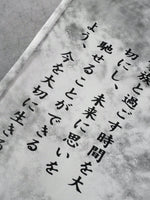 族と過ごす時間を大
切にし、未来に思いを
馳せることができる
よう、今を大切に生きる